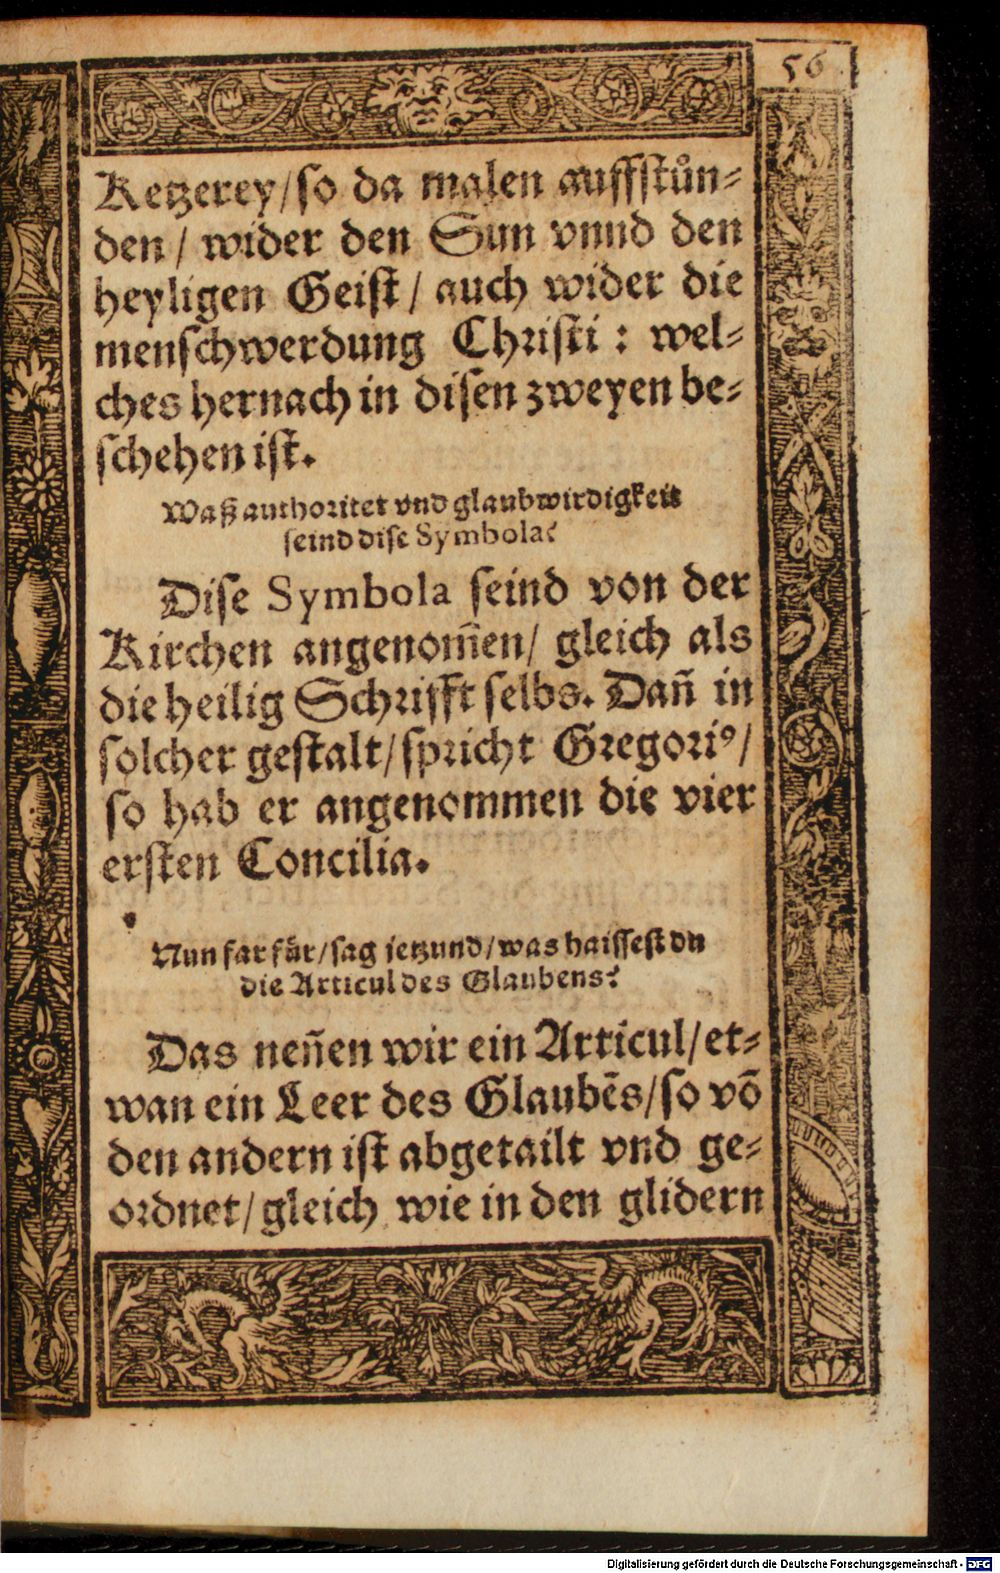 56.
Ketzerey/ so da malen auffstůn⸗
den/ wider den Sun vnnd den
heyligen Geist/ auch wider die
menschwerdung Christi: wel⸗
ches hernach in disen zweyen be⸗
schehen ist.
Waß authoritet vnd glaubwirdigkeit
seind dise Symbola?
Dise Symbola seind von der
Kirchen angenom̃en/ gleich als
die heilig Schrifft selbs. Dañ in
solcher gestalt/ spricht Gregoriꝰ/
so hab er angenommen die vier
ersten Concilia.
Nun far fůr/ sag jetzund/ was haissest du
die Articul des Glaubens?
Das neñen wir ein Articul/ et⸗
wan ein Leer des Glaubēs/ so vō
den andern ist abgetailt vnd ge⸗
ordnet/ gleich wie in den glidern
Digitalisierung gefördert durch die Deutsche Forschungsgemeinschaft - DFG